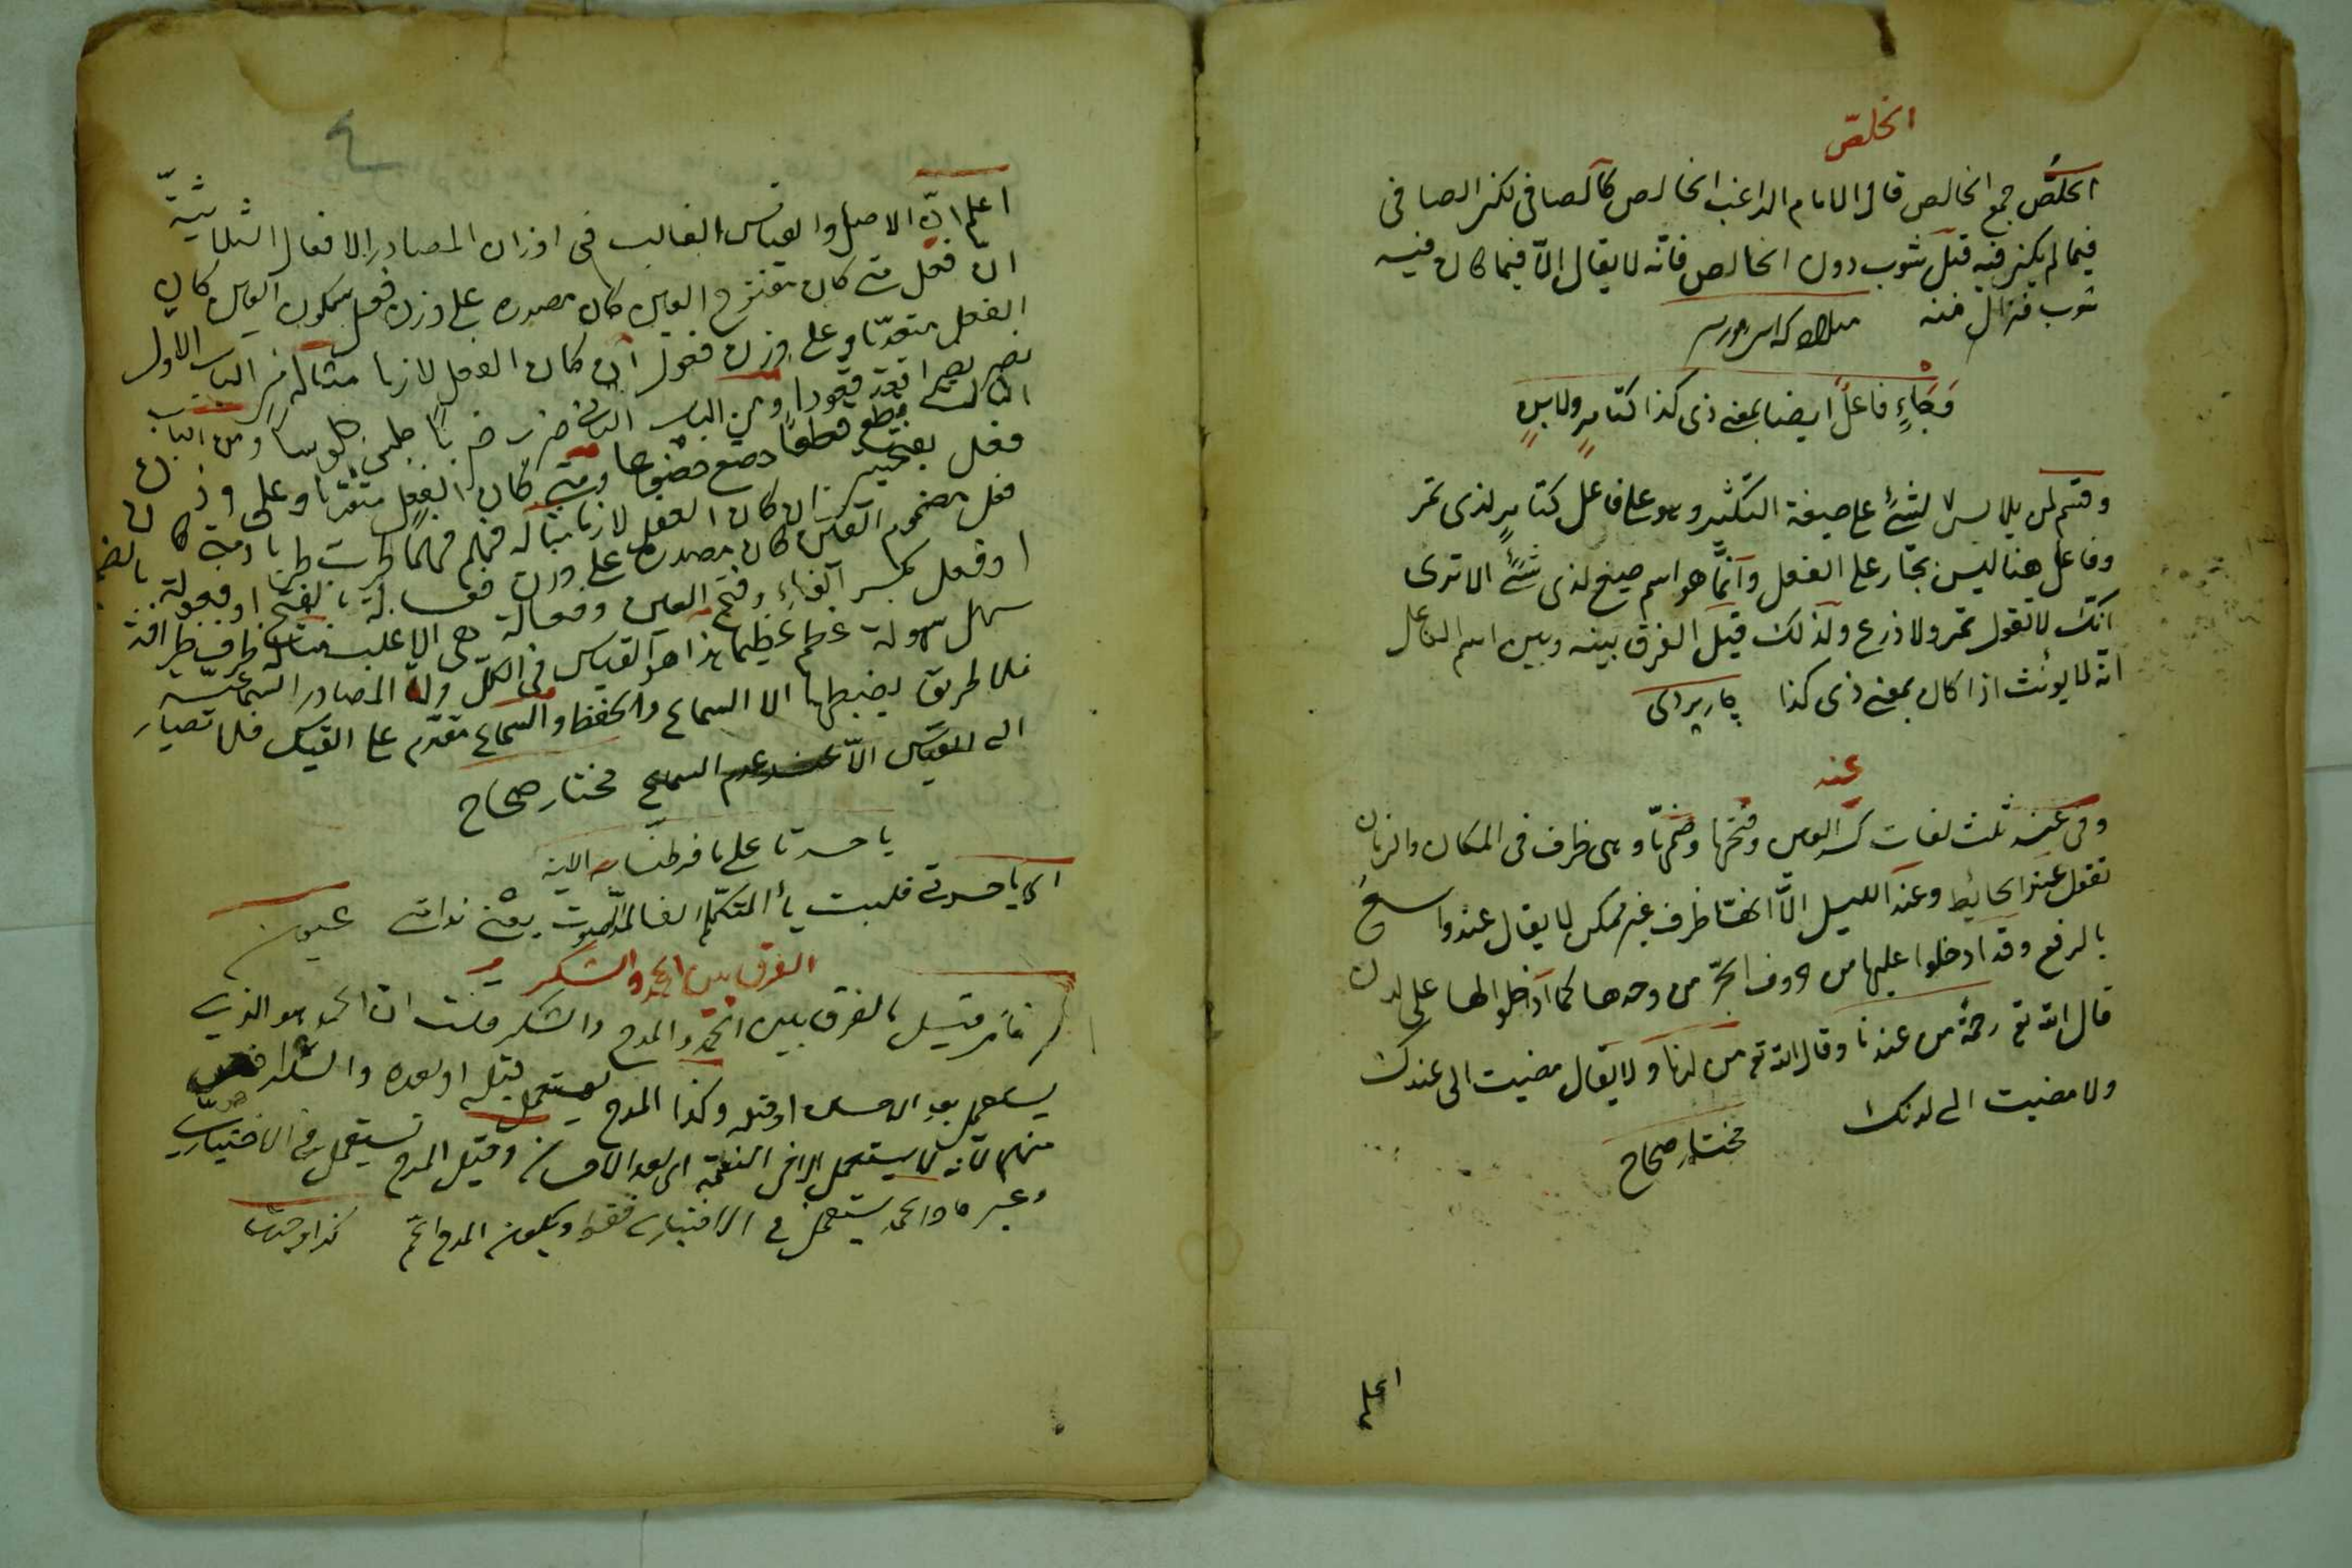 الخلصّ
الخلصّ جمع الخالص قال الامام الراغب الخالص كالصافى لكن الصافى
فيما لم يكن فيه قبل شوب دون الخالص فانّه لا يقال الّا فيما كان فيه
شوب فزال منه
فاعل ايضا بمعنى ذى كذا كتامرٍ ولابنٍ
لمن يلابس لشئ على صيغة التكثير وهو على فاعل كتامرٍ لذى تمر
وفاعل هنا ليس بجار على الفعل وانّما هو اسم صيغ لذى شئ الا ترى
انّك لا تقول تمر ولا ذرع ولذلك قيل الفرق بينه وبين اسم الفاعل
انّه لا يونث اذا كان بمعنى ذى كذا
عند
وفى عند ثلث لغات كسر العين وفتحها وضمّها وهى ظرف فى المكان والزمان
تقول عند الحائط وعند الليل الّا انها ظرف غير ممكن لا يقال عندو واسعٌ
بالرفع وقد ادخلوا عليها من حروف الجرّ من وحدها كما ادخلوها على لدن
قال الله تع رحمة من عندنا وقال الله تع من لدنا ولا يقال مضيت الى عندك
ولا مضيت الى لدنك مختار صحاح
اعلم
اعلم انّ الاصل والقياس الغالب فى اوزان المصادر الافعال الثلاثيّة
انّ فعل متى كان مفتوح العين كان مصدره على وزن فعل بسكون العين كان
الفعل متعدّيا وعلى وزن فعول ان كان الفعل لازما مثاله من الباب الاول
نصر نصرا قعد قعودا ومن الباب الثانى ضرب ضربا جلس جلوسا ومن الباب
الثالث قطع قطعا خضع خضوعا ومتى كان الفعل وعلى وزن
فعل بفتحتين ان كان الفعل لازما مثاله فهم فهما طرب طربا ومتى كان
فعل مضموم العين كان مصدره على وزن فعالة بالفتح او فعولة بالضم
او فعل بكسر الفاء وفتح العين وفعالة هى الاغلب مثاله ظرف ظرافة
سهل سهولة عظم عظما هذا هو القياس فى الكلّ وامّا المصادر السماعيّة
فلا طريق لضبطها الا السماع والحفظ والسماع مقدّم على القياس فلا تصار
الى القياس الّا عند عدم السماع مختار صحاح
يا حسرتا على ما فرطنا الاية
اى يا حسرتى قلبت ياء المتكلّم الفا عيون
الفرق بين الحمد والشكر
فان قيل ما الفرق بين الحمد والمدح والشكر قلت ان الحمد هو الذى
يستعمل بعد الاحسان او قبله وكذا المدح يستعمل قبله او بعده والشكر اخصّ
منهما لانه لا يستعمل الا فى النعمة اى بعد الاحسان وقيل المدح يستعمل فى الاختيارى
وغيره والحمد يستعمل فى الاختيارى فقط ويكون المدح اعمّ كذا وجدت